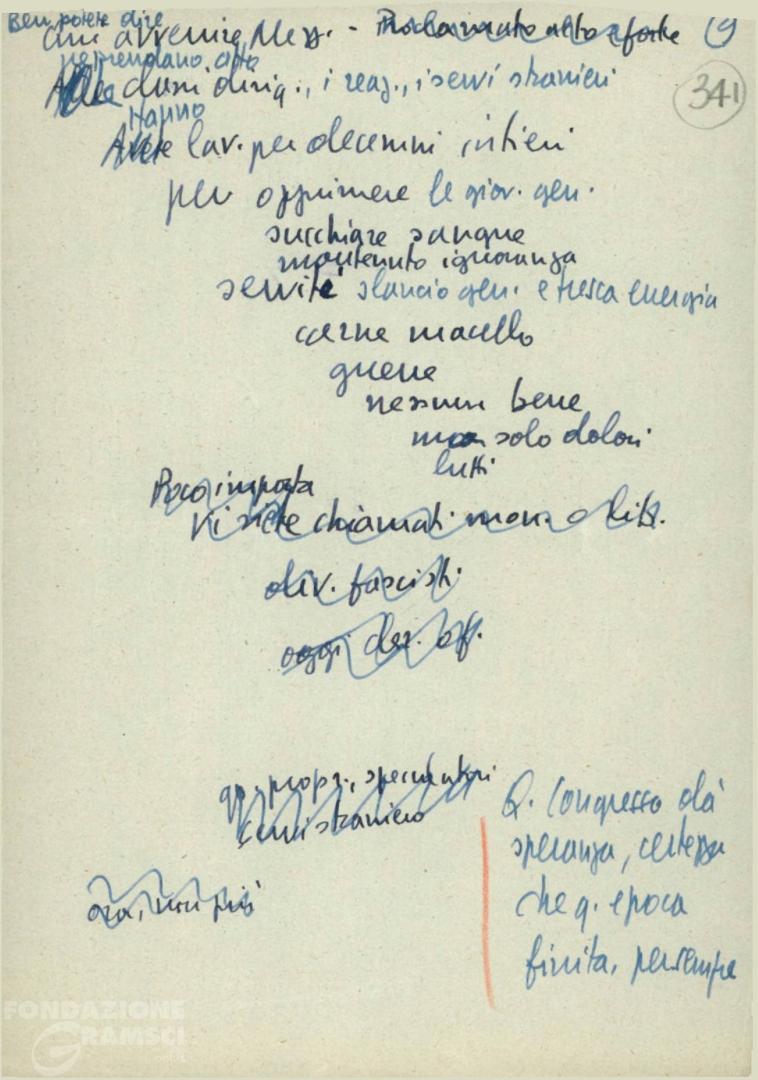 Ben potete dire
avvenire Mezz. - Proclamato alto e forte 9
ne prendano atto
Alle classi dirig., i reaz., i servi stranieri
341
Hanno
Avete lav. per decenni intieri
per opprimere le giov. gen.
succhiare sangue
mantenuto ignoranza
servitù slancio gen. e fresca energia
carne macello
guerre
nessun bene
ma solo dolori
lutti
Poco importa
Vi siete chiamati mon. o lib.
div. fascisti
oggi
gr. propr., speculatori
servi straniero
ora, non più
Q. Congresso dà
speranza, certezza
che q. epoca
finita, per sempre
FONDAZIONE
GRAMSCI